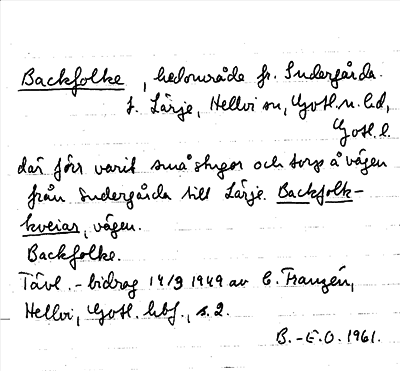 Backfolke, hedområde fr. Sudergårda
t. Lärje, Hellvi sn, Gotl. n. hd,
Gotl. l.
där förr varit små stugor och torp å vägen
från Sudergårda till Lärje. Backfolk-
kveiar, vägen.
Backfolke.
Tävl.-bidrag 14/3 1949 av C. Franzén,
Hellvi, Gotl. hbf., s. 2.
B.-E.O. 1961.